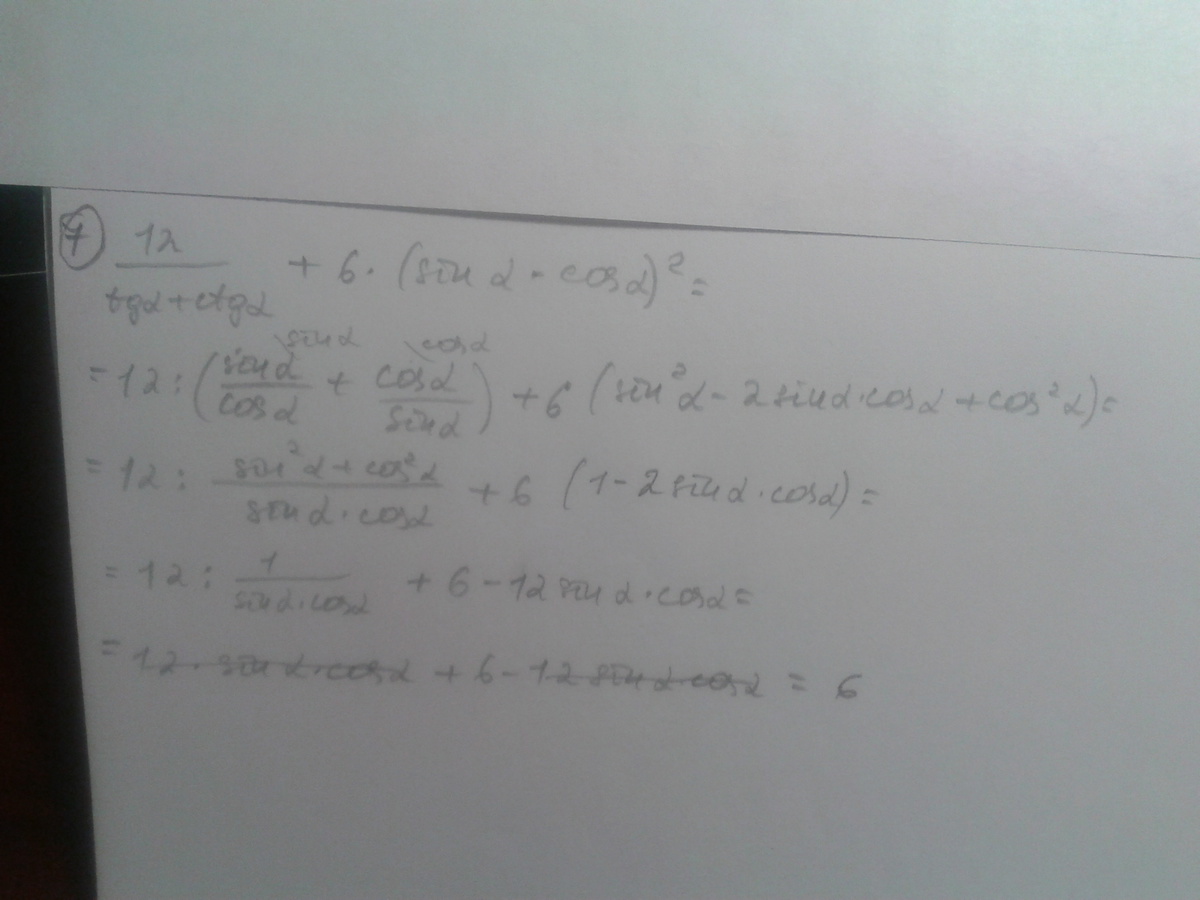 7) 12/(tgα + ctgα) + 6·(sin α - cos α)² =
= 12 : (sin α/cos α \sin α + cos α/sin α \cos α) + 6 (sin²α - 2 sin α·cos α + cos²α) =
= 12 : (sin²α + cos²α)/(sin α·cos α) + 6 (1 - 2 sin α·cos α) =
= 12 : 1/(sin α·cos α) + 6 - 12 sin α·cos α =
= 12·sin α·cos α + 6 - 12 sin α cos α = 6